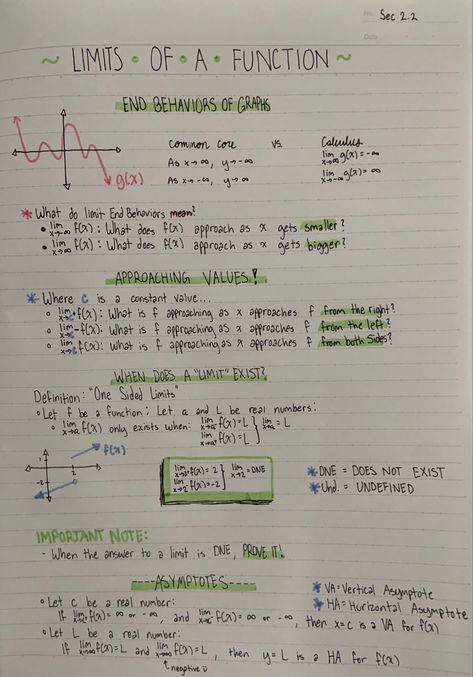 No.
Sec 2.2
Date
~ LIMITS • OF • A • FUNCTION ~
END BEHAVIORS OF GRAPHS
g(x)
Common Core vs. Calculus
As x→∞, y→-∞ lim x→∞ g(x) = -∞
As x→-∞, y→∞ lim x→-∞ g(x) = ∞
* What do limit End Behaviors mean?
• lim x→-∞ f(x): What does f(x) approach as x gets smaller?
• lim x→∞ f(x): What does f(x) approach as x gets bigger?
APPROACHING VALUES!
* Where C is a constant value...
◦ lim x→c⁺ f(x): What is f approaching as x approaches f from the right?
◦ lim x→c⁻ f(x): What is f approaching as x approaches f from the left?
◦ lim x→c f(x): What is f approaching as x approaches f from both sides?
WHEN DOES A "LIMIT" EXIST?
Definition: "One Sided Limits"
◦ Let f be a function; Let a and L be real numbers:
◦ lim x→a f(x) only exists when: lim x→a⁻ f(x) = L } lim x→a = L
lim x→a⁺ f(x) = L
f(x)
2
-2
lim x→2⁺ f(x) = 2 } lim x→2 = DNE
lim x→2⁻ f(x) = -2
* DNE = DOES NOT EXIST
* Und. = UNDEFINED
IMPORTANT NOTE:
- When the answer to a limit is DNE, PROVE IT!
----ASYMPTOTES----
* VA = Vertical Asymptote
* HA = Horizontal Asymptote
◦ Let c be a real number:
If lim x→c⁺ f(x) = ∞ or -∞, and lim x→c⁻ f(x) = ∞ or -∞, then x=c is a VA for f(x)
◦ Let L be a real number:
If lim x→∞ f(x) = L and lim x→-∞ f(x) = L, then y = L is a HA for f(x)
↑ negative